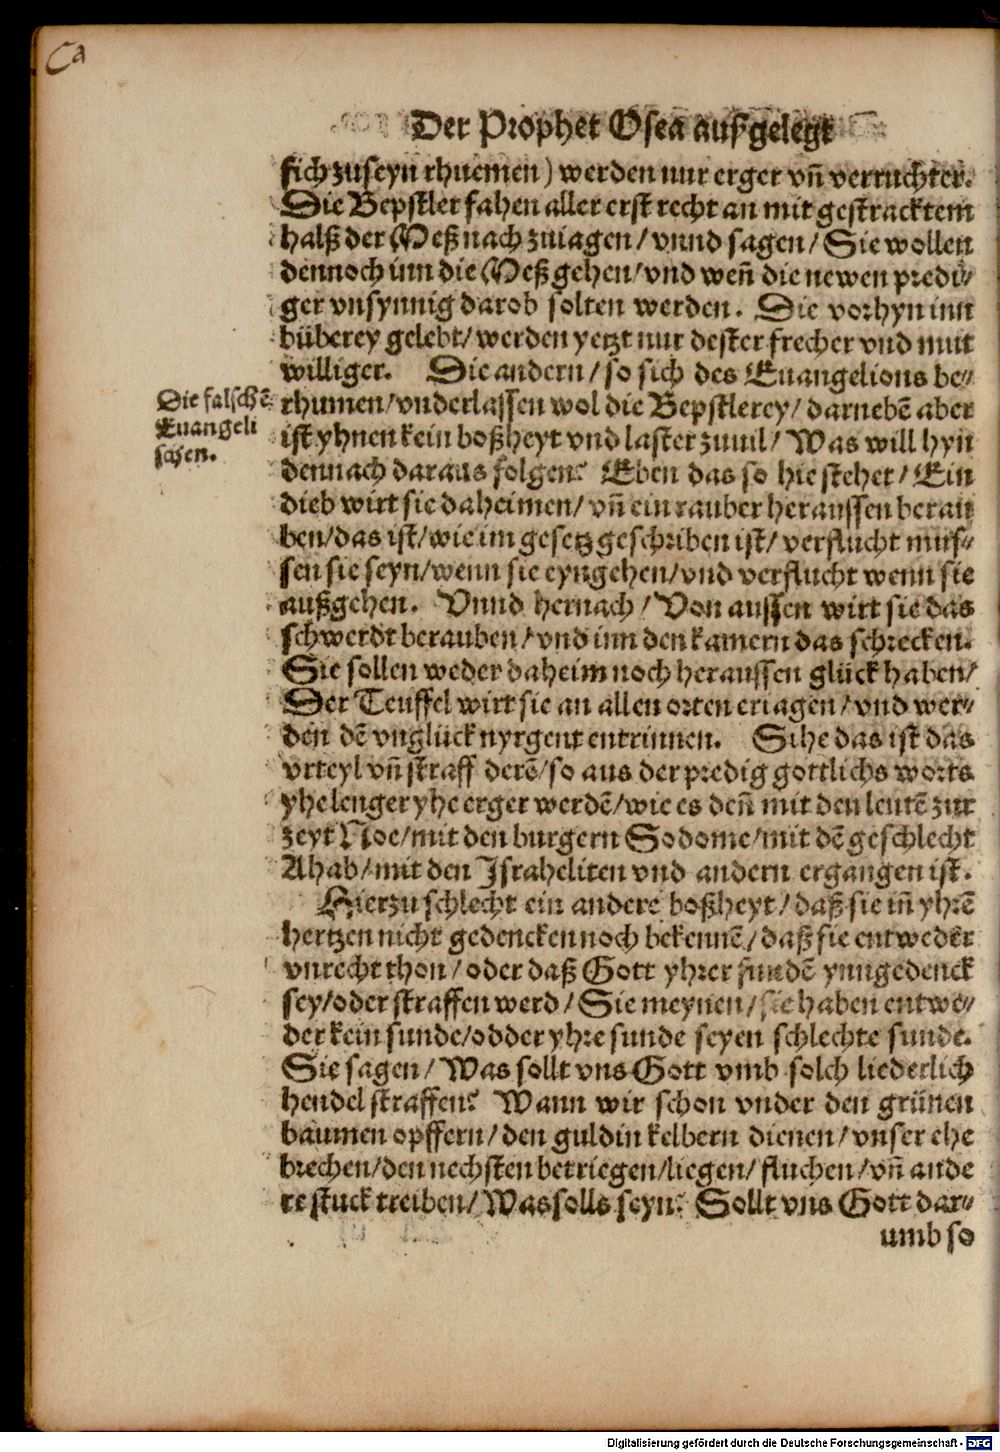 Ca
Der Prophet Osea außgelegt
sich zuseyn rhuemen) werden nur erger vñ verruchter.
Die Bepstler fahen aller erst recht an mit gestracktem
halß der Meß nach zuiagen/ vnnd sagen/ Sie wollen
dennoch inn die Meß gehen/ vnd weñ die newen predi⸗
ger vnsynnig darob solten werden. Die vorhyn inn
büberey gelebt/ werden yetzt nur dester frecher vnd mut
williger. Die andern/ so sich des Euangelions be⸗
Die falschē
Euangeli
schen.
rhumen/ vnderlassen wol die Bepstlerey/ darnebē aber
ist yhnen kein boßheyt vnd laster zuuil/ Was will hyn
dennach daraus folgen? Eben das so hie stehet/ Ein
dieb wirt sie daheimen/ vñ ein rauber heraussen berau
ben/ das ist/ wie im gesetz geschriben ist/ verflucht mus⸗
sen sie seyn/ wenn sie eyngehen/ vnd verflucht wenn sie
außgehen. Vnnd hernach/ Von aussen wirt sie das
schwerdt berauben/ vnd inn den kamern das schrecken.
Sie sollen weder daheim noch heraussen glück haben/
Der Teuffel wirt sie an allen orten eriagen/ vnd wer⸗
den dē vnglück nyrgent entrinnen. Sihe das ist das
vrteyl vñ straff derē/ so aus der predig gottlichs worts
yhe lenger yhe erger werdē/ wie es deñ mit den leutē zur
zeyt Noe/ mit den burgern Sodome/ mit dē geschlecht
Ahab/ mit den Israheliten vnd andern ergangen ist.
Hierzu schlecht ein andere boßheyt/ daß sie iñ yhrē
hertzen nicht gedencken noch bekennē/ daß sie entweder
vnrecht thon/ oder daß Gott yhrer sundē ynngedenck
sey/ oder straffen werd/ Sie meynen/ sie haben entwe⸗
der kein sunde/ odder yhre sunde seyen schlechte sunde.
Sie sagen/ Was sollt vns Gott vmb solch liederlich
hendel straffen? Wann wir schon vnder den grünen
baumen opffern/ den guldin kelbern dienen/ vnser ehe
brechen/ den nechsten betriegen/ liegen/ fluchen/ vñ ande
re stuck treiben/ Was solls seyn? Sollt vns Gott dar⸗
umb so
Digitalisierung gefördert durch die Deutsche Forschungsgemeinschaft - DFG